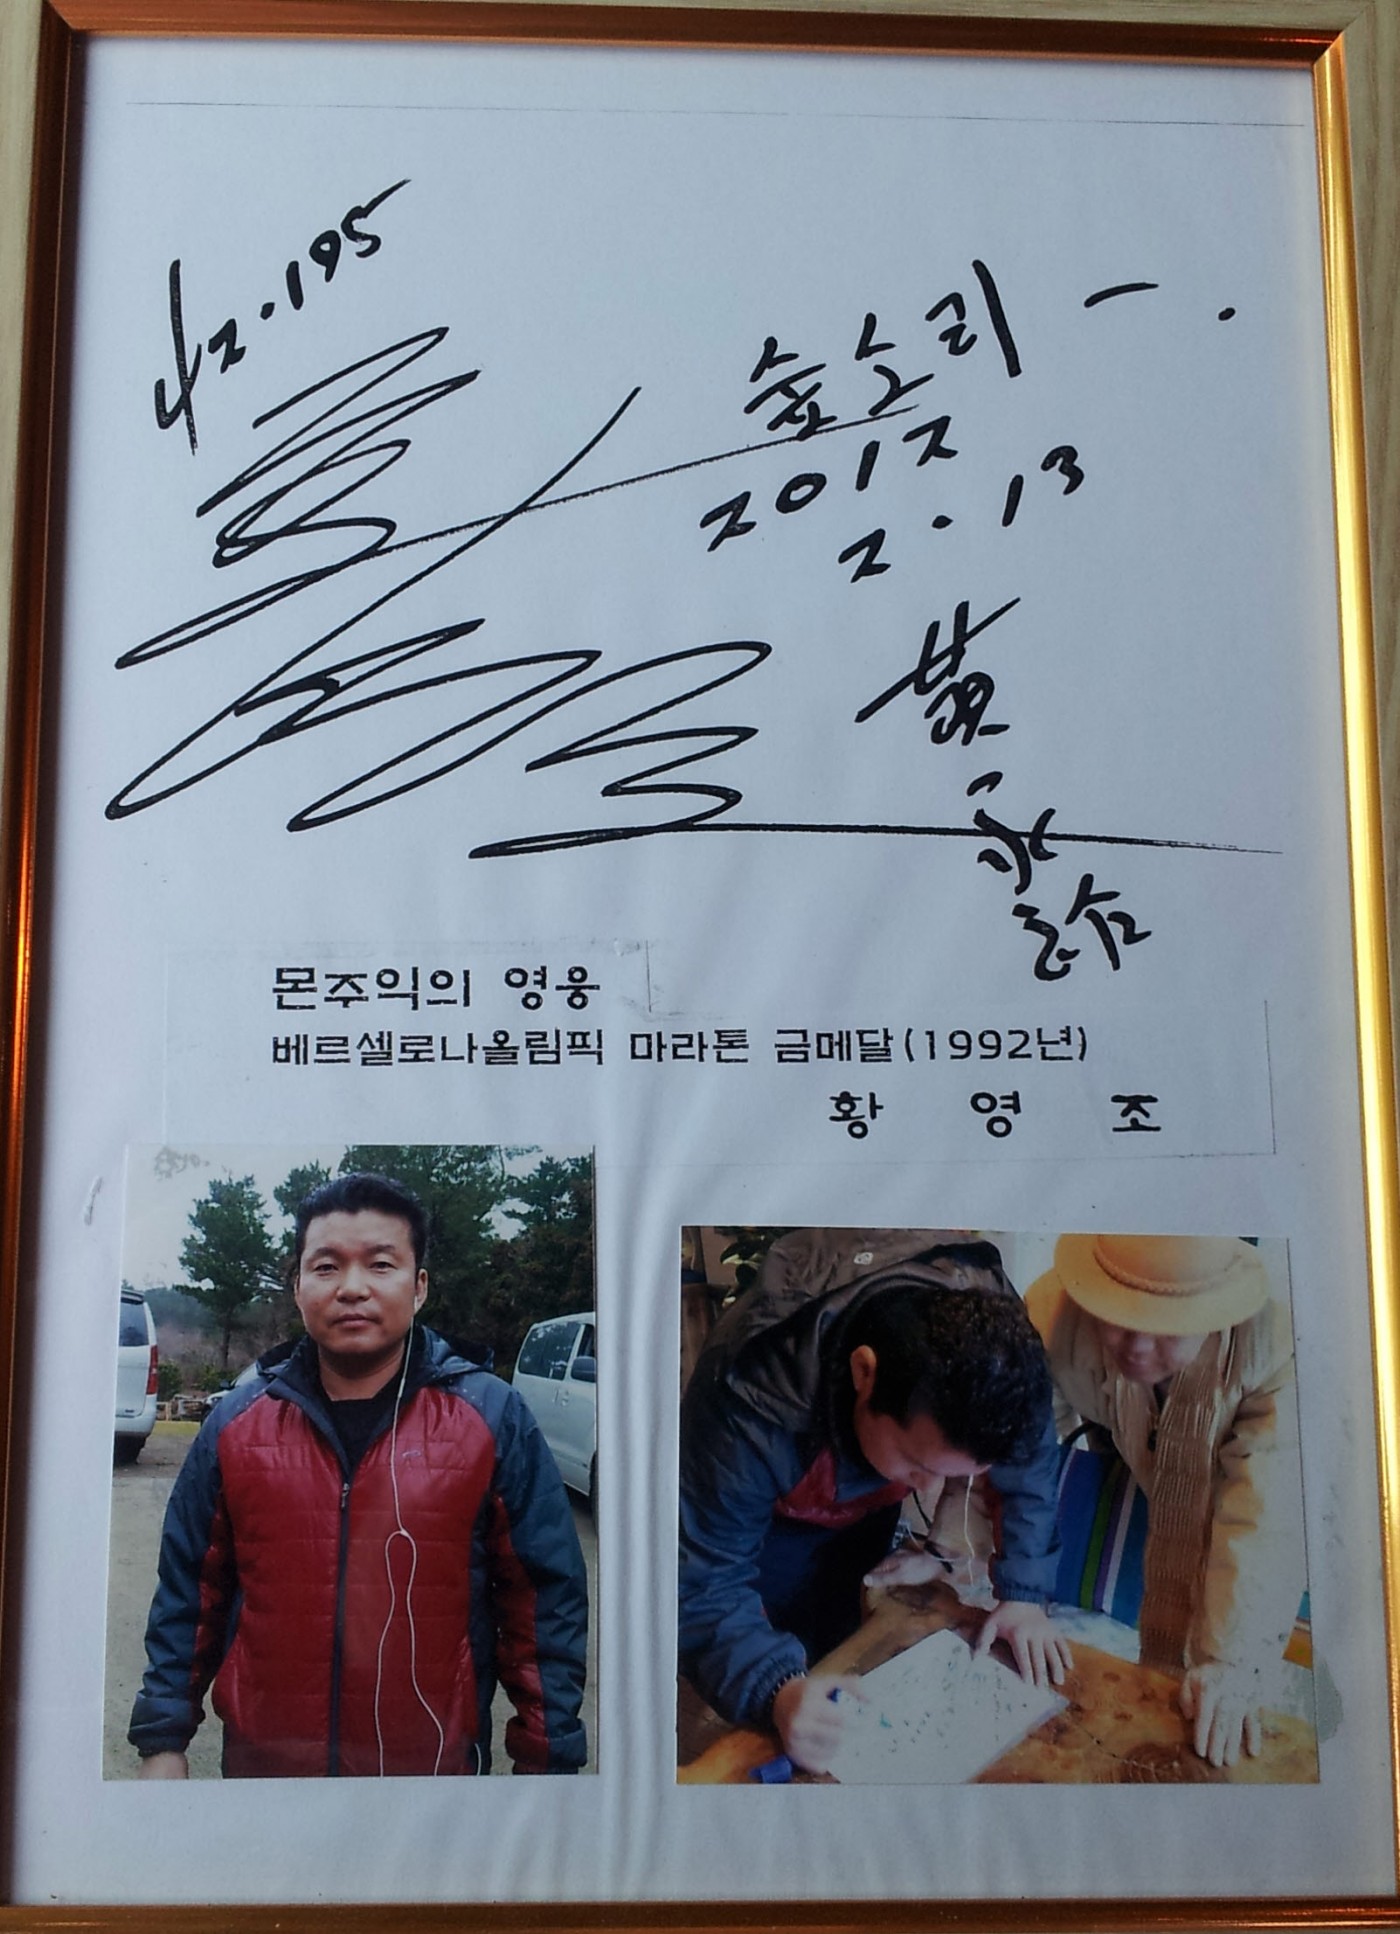 42.195
숨소리 — .
2012
2.13
黃
永
몬주익의 영웅
베르셀로나올림픽 마라톤 금메달(1992년)
황 영 조